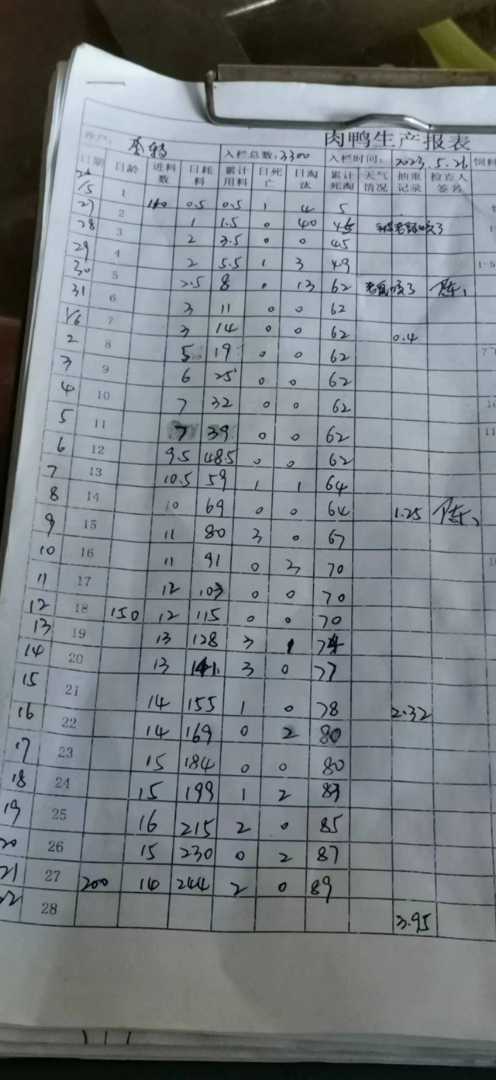 肉鸭生产报表
养户: 入栏总数: 3300 入栏时间: 2023.5.26 饲料
日期 日龄 进料数 日耗料 累计用料 日死亡 日淘汰 累计死淘 天气情况 抽重记录 检查人签名
26/5 1 0.5 0.5 1 4 5
27 2 1 1.5 0 40 45
28 3 2 3.5 0 0 45
29 4 2 5.5 1 3 49
30 5 2.5 8 0 13 62
31 6 3 11 0 0 62
1/6 7 3 14 0 0 62 0.4
2 8 5 19 0 0 62
3 9 6 25 0 0 62
4 10 7 32 0 0 62
5 11 7 39 0 0 62
6 12 9.5 48.5 0 0 62
7 13 10.5 59 1 1 64
8 14 10 69 0 0 64 1.25
9 15 11 80 3 0 67
10 16 11 91 0 3 70
11 17 12 103 0 0 70
12 18 150 12 115 0 0 70
13 19 13 128 3 74
14 20 13 141 3 0 77
15 21 14 155 1 0 78 2.32
16 22 14 169 0 2 80
17 23 15 184 0 0 80
18 24 15 199 1 2 83
19 25 16 215 2 0 85
20 26 15 230 0 2 87
21 27 200 14 244 2 0 89
22 28 3.95